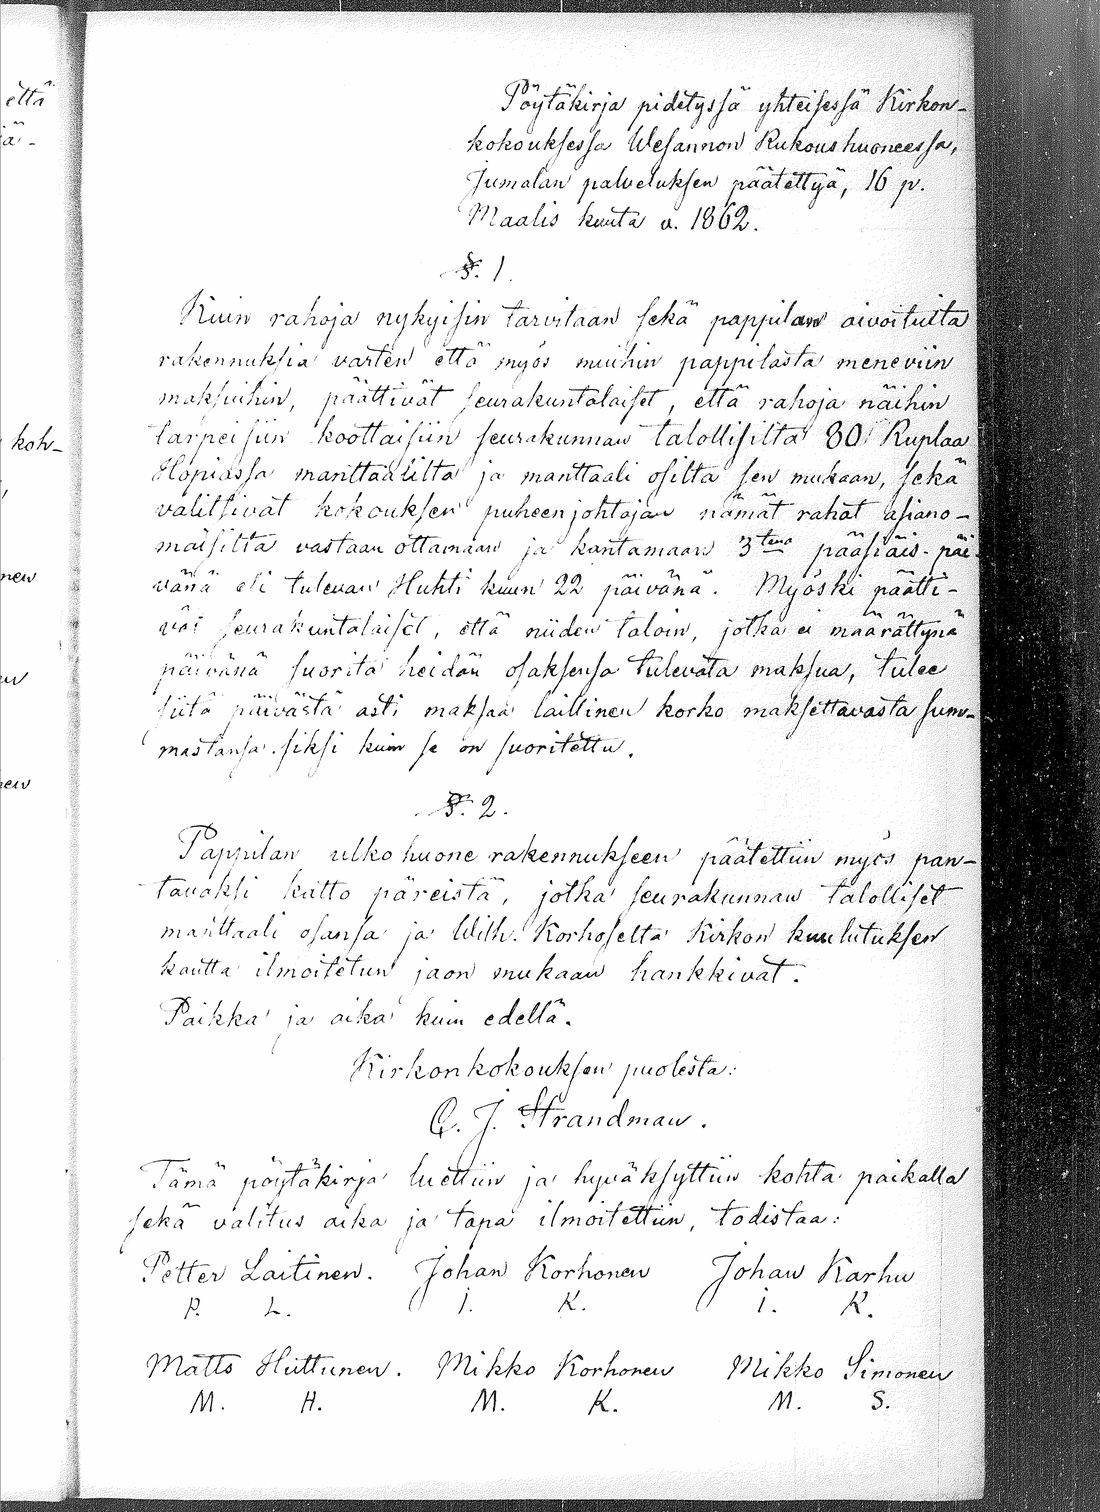 että
iä-
koh-
nen
en
nen
Pöytäkirja pidetyssä yhteisessä Kirkon-
kokouksessa Wesannon Rukoushuoneessa,
Jumalan palveluksen päätettyä, 16 p.
Maalis kuuta v. 1862.
§. 1.
Kuin rahoja nykyisin tarvitaan sekä pappilan aivoituita
rakennuksia varten että myös muihin pappilasta meneviin
maksuihin, päättivät seurakuntalaiset, että rahoja näihin
tarpeisiin koottaisiin seurakunnan talollisilta 30 Ruplaa
Hopiassa manttaalilta ja manttaali osilta sen mukaan, sekä
valitsivat kokouksen puheenjohtajan nämät rahat asiano-
maisilta vastaan ottamaan ja kantamaan 3tena pääsiäis-päi-
vänä eli tulevan Huhti kuun 22 päivänä. Myöski päätti-
vät seurakuntalaiset, että niiden taloin, jotka ei määrättynä
päivänä suorita heidän osaksensa tulevata maksua, tulee
siitä päivästä asti maksaa laillinen korko maksettavasta sum-
mastansa siksi kuin se on suoritettu.
§. 2.
Pappilan ulko huone rakennukseen päätettiin myös pan-
tavaksi katto päreistä, jotka seurakunnan talolliset
manttaali osansa ja Wilh. Korhoselta Kirkon kuulutuksen
kautta ilmoitetun jaon mukaan hankkivat.
Paikka ja aika kuin edellä.
Kirkonkokouksen puolesta:
C. J. Strandman.
Tämä pöytäkirja luettiin ja hyväksyttiin kohta paikalla
sekä valitus aika ja tapa ilmoitettiin, todistaa:
Petter Laitinen. Johan Korhonen Johan Karhu
P. L. I. K. I. K.
Matts Huttunen. Mikko Korhonen Mikko Simonen
M. H. M. K. M. S.